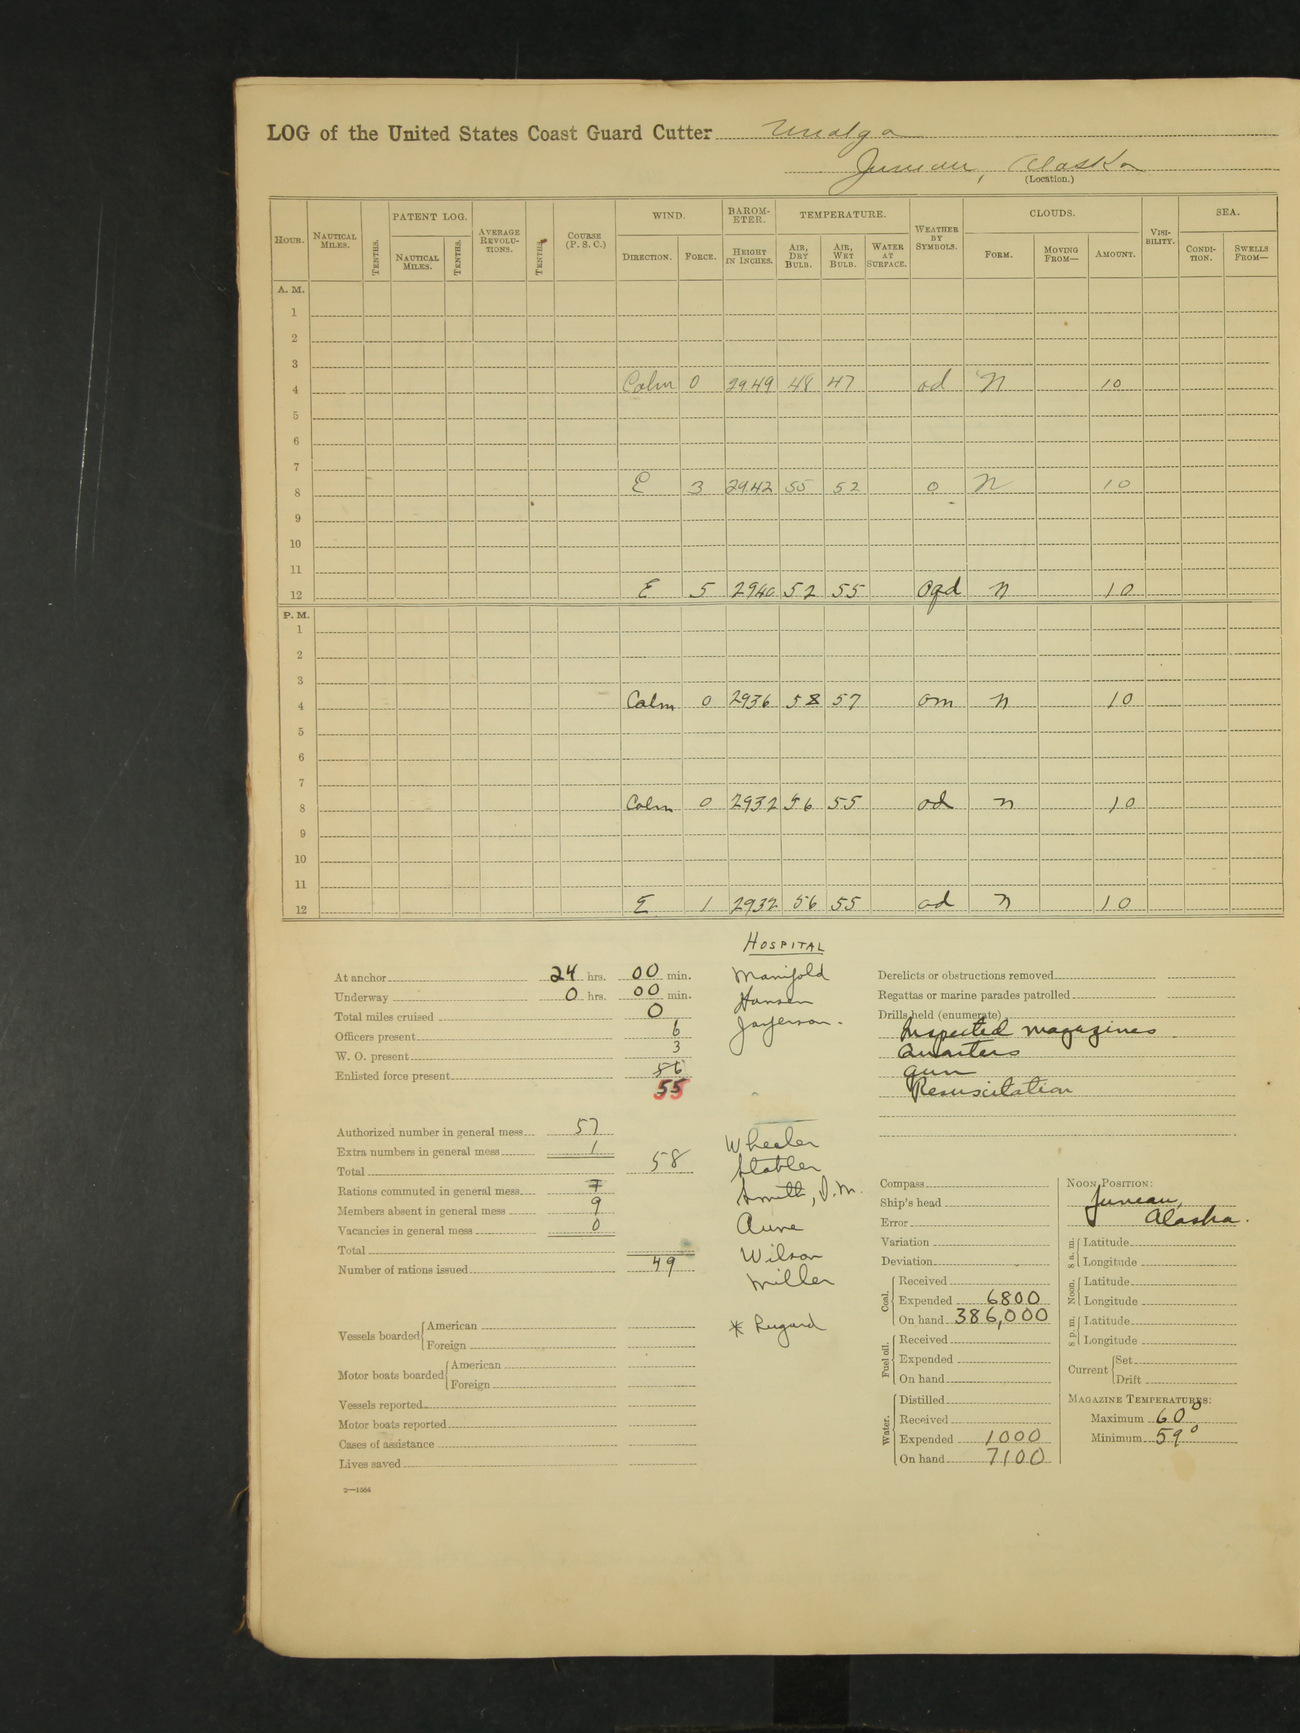 LOG of the United States Coast Guard Cutter Unalga
Juneau, Alaska
(Location.)
HOUR. NAUTICAL MILES. TENTHS. PATENT LOG. NAUTICAL MILES. TENTHS. AVERAGE REVOLUTIONS. TENTHS. COURSE (P. S. C.) WIND. DIRECTION. FORCE. BAROMETER. HEIGHT IN INCHES. TEMPERATURE. AIR, DRY BULB. AIR, WET BULB. WATER AT SURFACE. WEATHER BY SYMBOLS. CLOUDS. FORM. MOVING FROM— AMOUNT. VISIBILITY. SEA. CONDITION. SWELLS FROM—
A. M.
1
2
3
4 Calm 0 2949 48 47 od N 10
5
6
7
8 E 3 2942 55 52 o N 10
9
10
11
12 E 5 2940 52 55 oqd n 10
P. M.
1
2
3
4 Calm 0 2936 58 57 om n 10
5
6
7
8 Calm 0 2932 56 55 od n 10
9
10
11
12 E 1 2932 56 55 od n 10
HOSPITAL
Manifold
Hansen
At anchor 24 hrs. 00 min.
Underway 0 hrs. 00 min.
Total miles cruised 0
Officers present 6
W. O. present 3
Enlisted force present 56
55
Authorized number in general mess 57
Extra numbers in general mess 1
Total 58
Rations commuted in general mess 7
Members absent in general mess 9
Vacancies in general mess 0
Total
Number of rations issued 49
Wheeler
Stabler
Smith, D.M.
Aune
Wilson
Miller
Vessels boarded American
Foreign
Motor boats boarded American
Foreign
Vessels reported
Motor boats reported
Cases of assistance
Lives saved
2—1564
Derelicts or obstructions removed
Regattas or marine parades patrolled
Drills held (enumerate)
Inspected magazines
Quarters
Gun
Resuscitation
Compass
Ship's head
Error
Variation
Deviation
Coal. Received
Expended 6800
On hand 386,000
Fuel oil. Received
Expended
On hand
Water. Distilled
Received
Expended 1000
On hand 7100
NOON POSITION:
Juneau,
Alaska.
8 a. m. Latitude
Longitude
Noon. Latitude
Longitude
8 p. m. Latitude
Longitude
Current Set
Drift
MAGAZINE TEMPERATURES:
Maximum 60°
Minimum 59°